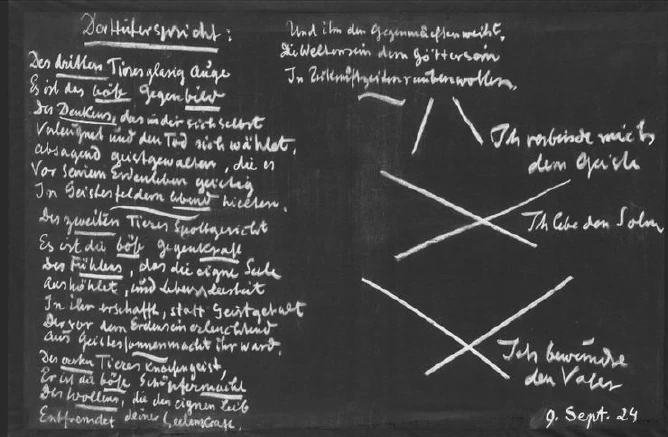 Der Hüter spricht:
Des dritten Tieres glasig Auge
Es ist das böse Gegenbild
Des Denkens, das in dir sich selbst
Verleugnet und den Tod sich wählet,
Absagend Geistgewalten, die es
Vor seinem Erdenleben geistig
In Geistesfeldern lebend hielten.
Des zweiten Tieres Spottgesicht
Es ist die böse Gegenkraft
Des Fühlens, das die eigne Seele
Aushöhlet, und Lebensleerheit
In ihr erschafft, statt Geistgehalt
Der vor dem Erdensein erleuchtend
Aus Geistessonnenmacht ihr ward.
Des ersten Tieres Knochengeist,
Er ist die böse Schöpfermacht
Des Wollens, die den eignen Leib
Entfremdet deiner Seelenkraft,
Und ihn den Gegenmächten weiht,
Die Weltensein dem Göttersein
In Zukunftzeiten rauben wollen.
Ich verbinde mich
dem Geiste
Ich lebe den Sohn
Ich bewundre
den Vater
9. Sept. 24